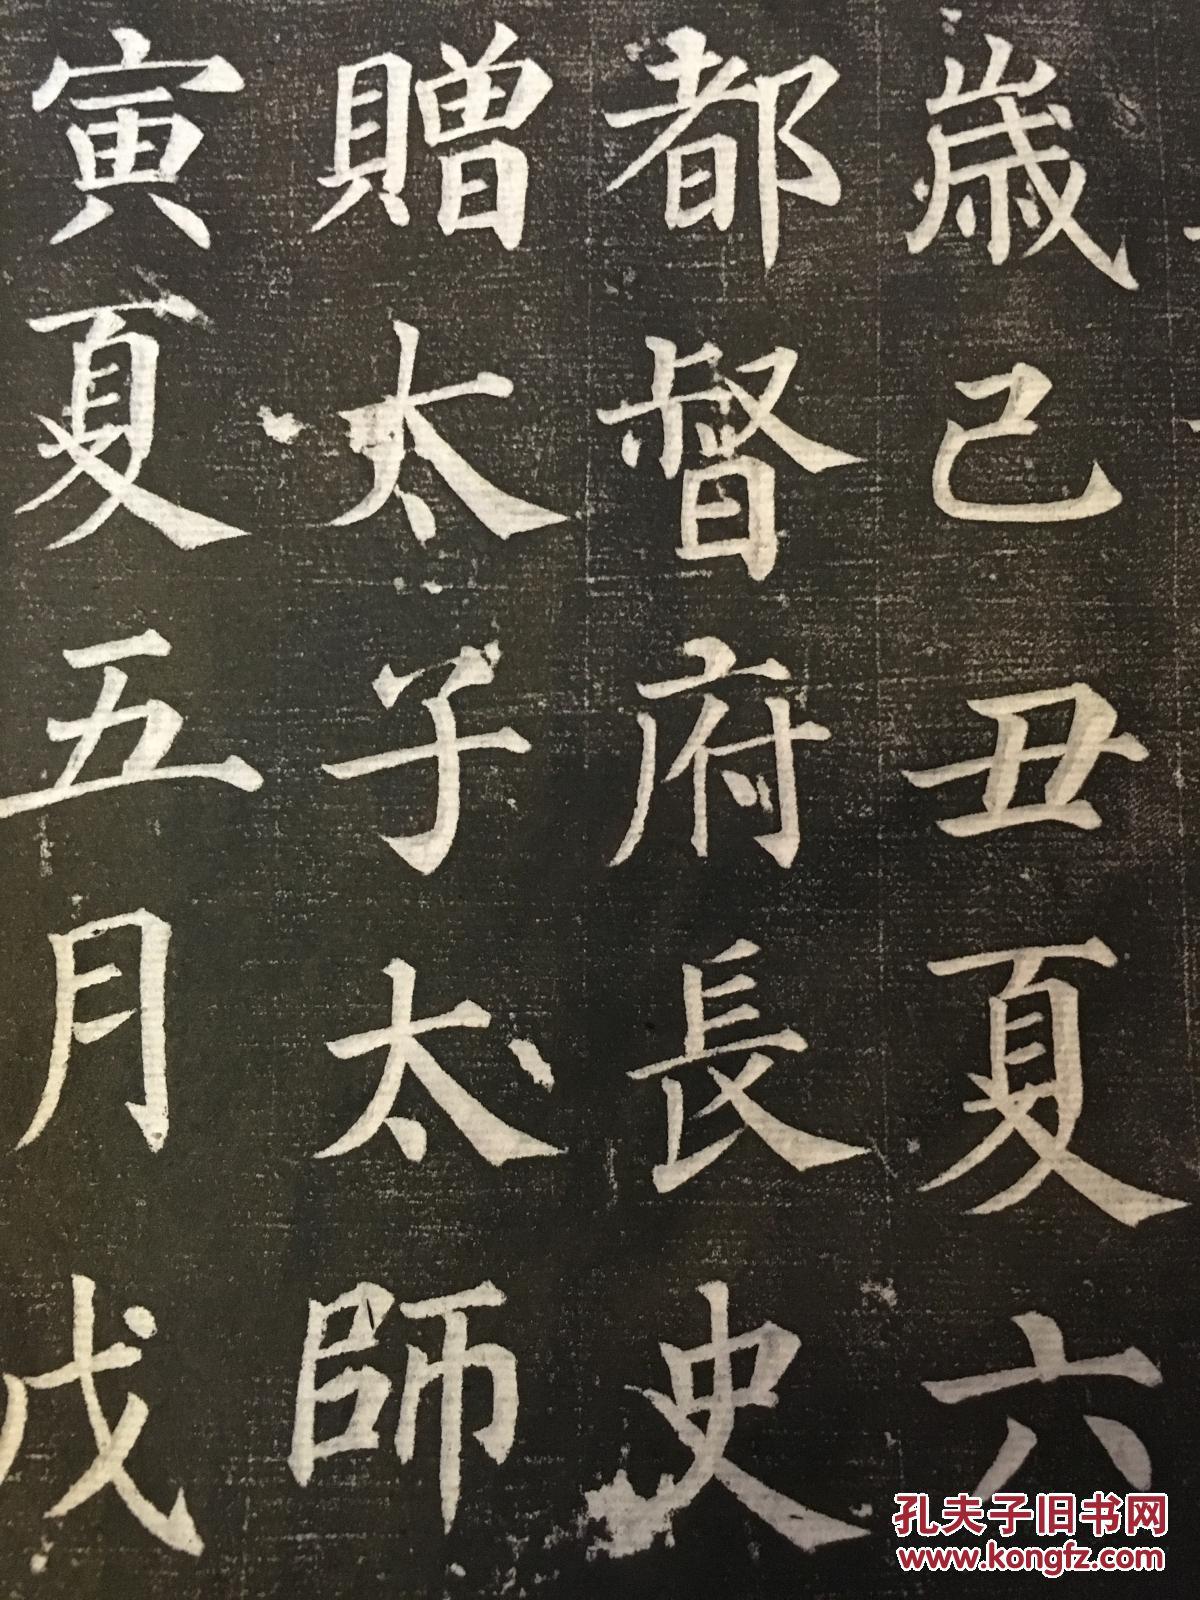 歳己丑夏六
都督府長史
贈太子太師
寅夏五月戊
孔夫子旧书网
www.kongfz.com